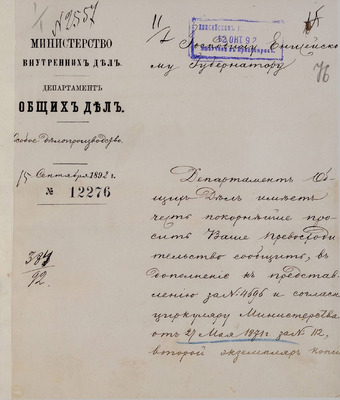 №2557
МИНИСТЕРСТВО
ВНУТРЕННИХЪ ДѢЛЪ.
ДЕПАРТАМЕНТЪ
ОБЩИХЪ ДѢЛЪ.
Особое дѣлопроизводство.
15 Сентября 1892 г.
№ 12276
384
92.
11
12 ОКТ 92
76
Господину Енисейско-
му Губернатору
Департаментъ Об-
щихъ Дѣлъ имѣетъ
честь покорнѣйше про-
сить Ваше Превосходи-
тельство сообщить, въ
дополненіе къ представ-
ленію за № 4696 и согласно
циркуляру Министерства
отъ 27 Мая 1871 г. за № 112,
второй экземпляръ копіи